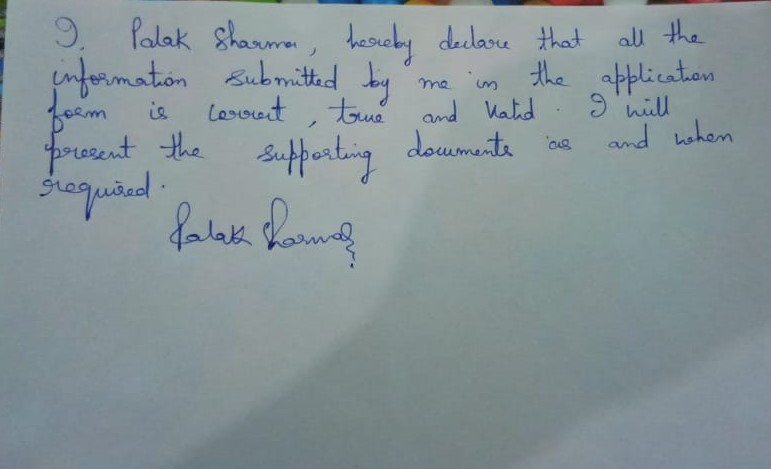 I, Palak Sharma, hereby declare that all the
information submitted by me in the application
form is correct, true and valid. I will
present the supporting documents as and when
required.
Palak Sharma